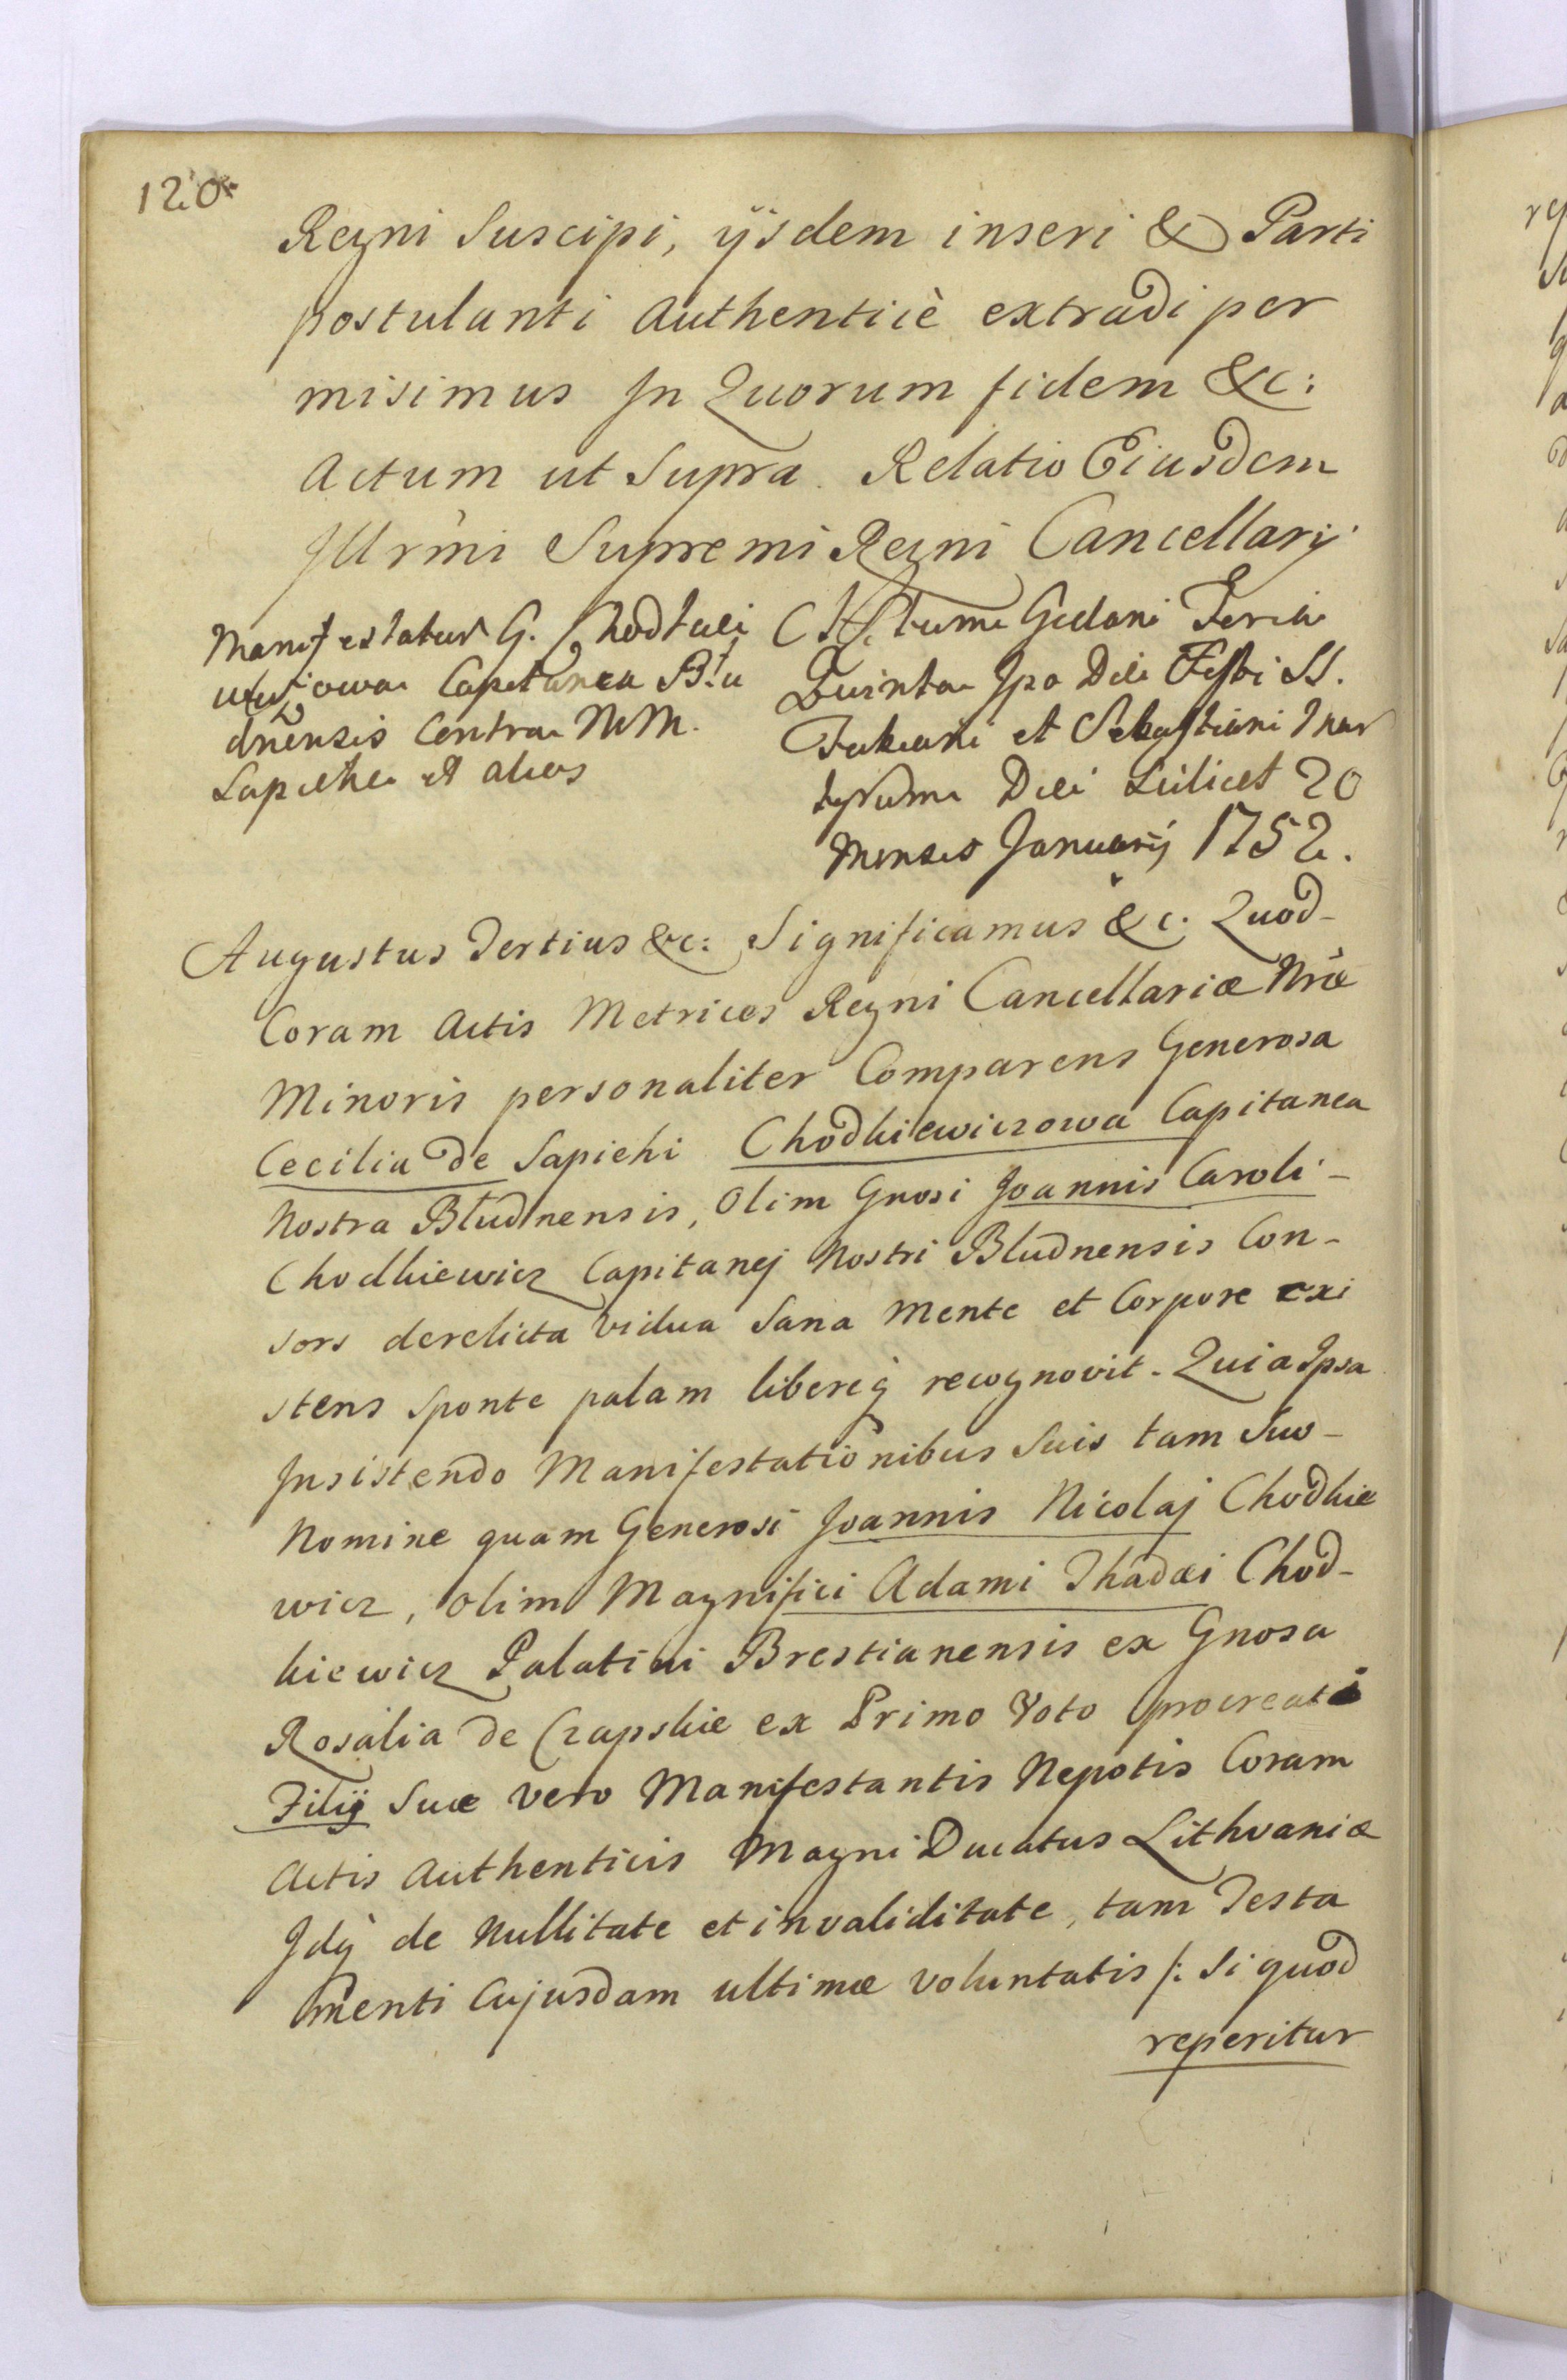 120
Regni Suscipi, ijsdem inseri & Parti
postulanti Authenticè extradi per
misimus In Quorum fidem &c:
Actum ut Supra. Relatio Eiusdem
Illrmi Supremi Regni Cancellarij
Manifestatur G. Chodkie
wiczowa Capitanea Błu
dnensis Contra MM.
Sapiehe et alios
Actum Gedani Feria
Quinta Ipo Die Festi SS.
Fabiani et Sebastiani Mar
tyrum Die Scilicet 20
Mensis Januarij 1752.
Augustus Tertius &c: Significamus &c. Quod-
Coram Actis Metrices Regni Cancellariæ Nræ
Minoris personaliter Comparens Generosa
Cecilia de Sapiehi Chodkiewiczowa Capitanea
Nostra Błudnensis, Olim Gnosi Joannis Caroli-
Chodkiewicz Capitanej Nostri Bludnensis Con-
sors derelicta Vidua Sana Mente et Corpore exi
stens sponte palam libereq recognovit. Quia Ipsa
Insistendo Manifestationibus Suis tam Suo-
Nomine quam Generosi Joannis Nicolaj Chodkie
wicz, olim Magnifici Adami Thadæi Chod-
kiewicz Palatini Brestianensis ex Gnosa
Rosalia de Czapskie ex Primo Voto procreati
Filij Suæ vero Manifestantis Nepotis Coram
Actis Authenticis Magni Ducatus Lithvaniæ
Idq de Nullitate et invaliditate, tam Testa
menti Cujusdam ultimæ voluntatis /: Si quod
reperitur